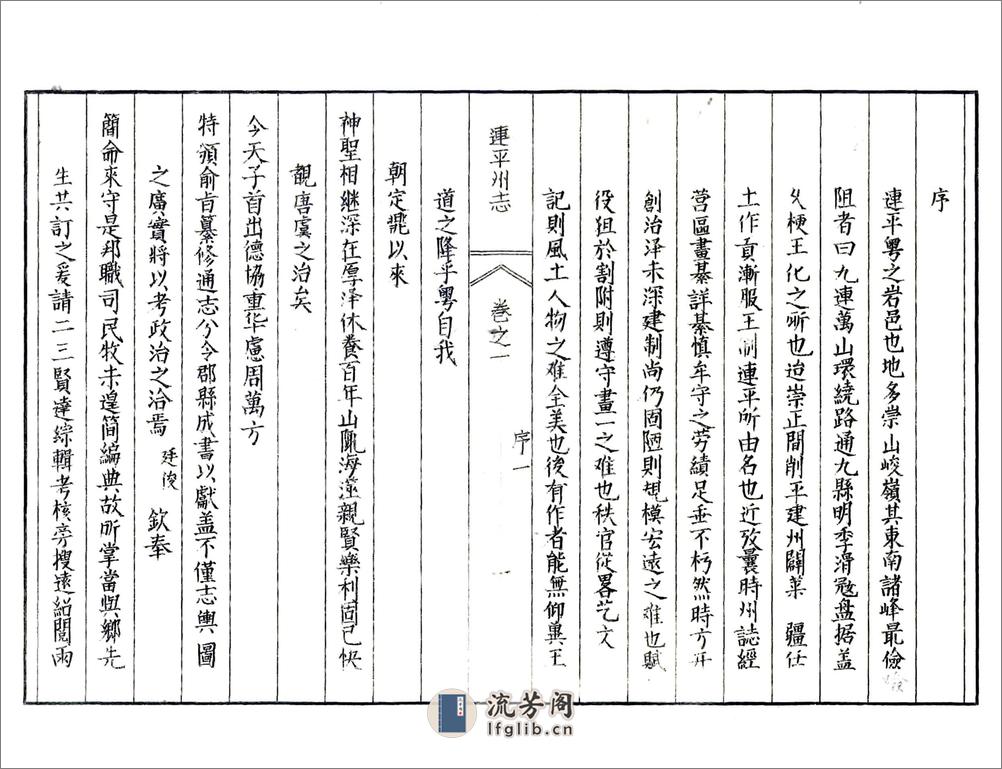 序
連平粵之岩邑也地多崇山峻嶺其東南諸峰最儉
阻者曰九連萬山環繞路通九縣明季滑寇盤据盖
乆梗王化之所也迨崇正間削平建州闢萊 疆任
土作貢漸服王制連平所由名也近攷曩時州誌經
营區畫綦詳綦慎牟守之劳績足垂不朽然時方开
創治泽未深建制尚仍固陋則規模宏遠之难也賦
役狃於割附則遵守畫一之难也秩官從畧艺文
記則風土人物之难全美也後有作者能無仰冀王
連平州志 卷之一 序一
道之降乎粵自我
朝定鼎以來
神聖相継深在厚泽休養百年山陬海澨親賢樂利固已快
覩唐虞之治矣
今天子首出德協重华慮周萬方
特頒俞肯纂修通志兮令郡縣成書以獻盖不僅志輿圖
之廣實將以考政治之治焉 廷俊 欽奉
簡命來守是邦職司民牧未遑簡編典故所掌當與鄉先
生共訂之爰請二三賢達綜輯考核旁搜遠紹閱兩
流芳阁
lfglib.cn